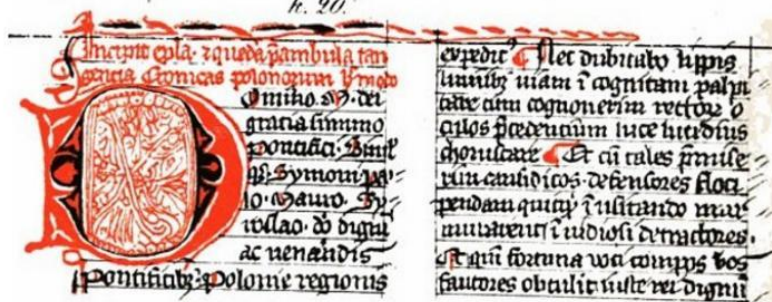 k. 20.
Incipit Epla. ⁊ queda p̄ambula tan
gencia Cronicas polonorum
Omino .M. dei
gracia summo
pontifici. Simul
qȝ. Symoni. pa
lo. Mauro. Sy
islao. do digni
ac uenandis
Pontificibȝ. Polonie regionis
expedit Nec dubitabo lippis
luminibȝ uiam ī cognitam palpi
tare cum cognouerim rectores o
culos p̄cedencium luce lucidius
choruscare. Et cū tales p̄mise
rim causidicos. defensores floci
pendam quitqᷓ ī uisitando mur
murauerint ī uidiosi detractores.
Et qm̄ fortuna uoti compos uos
fautores obtulit iuste rei dignū